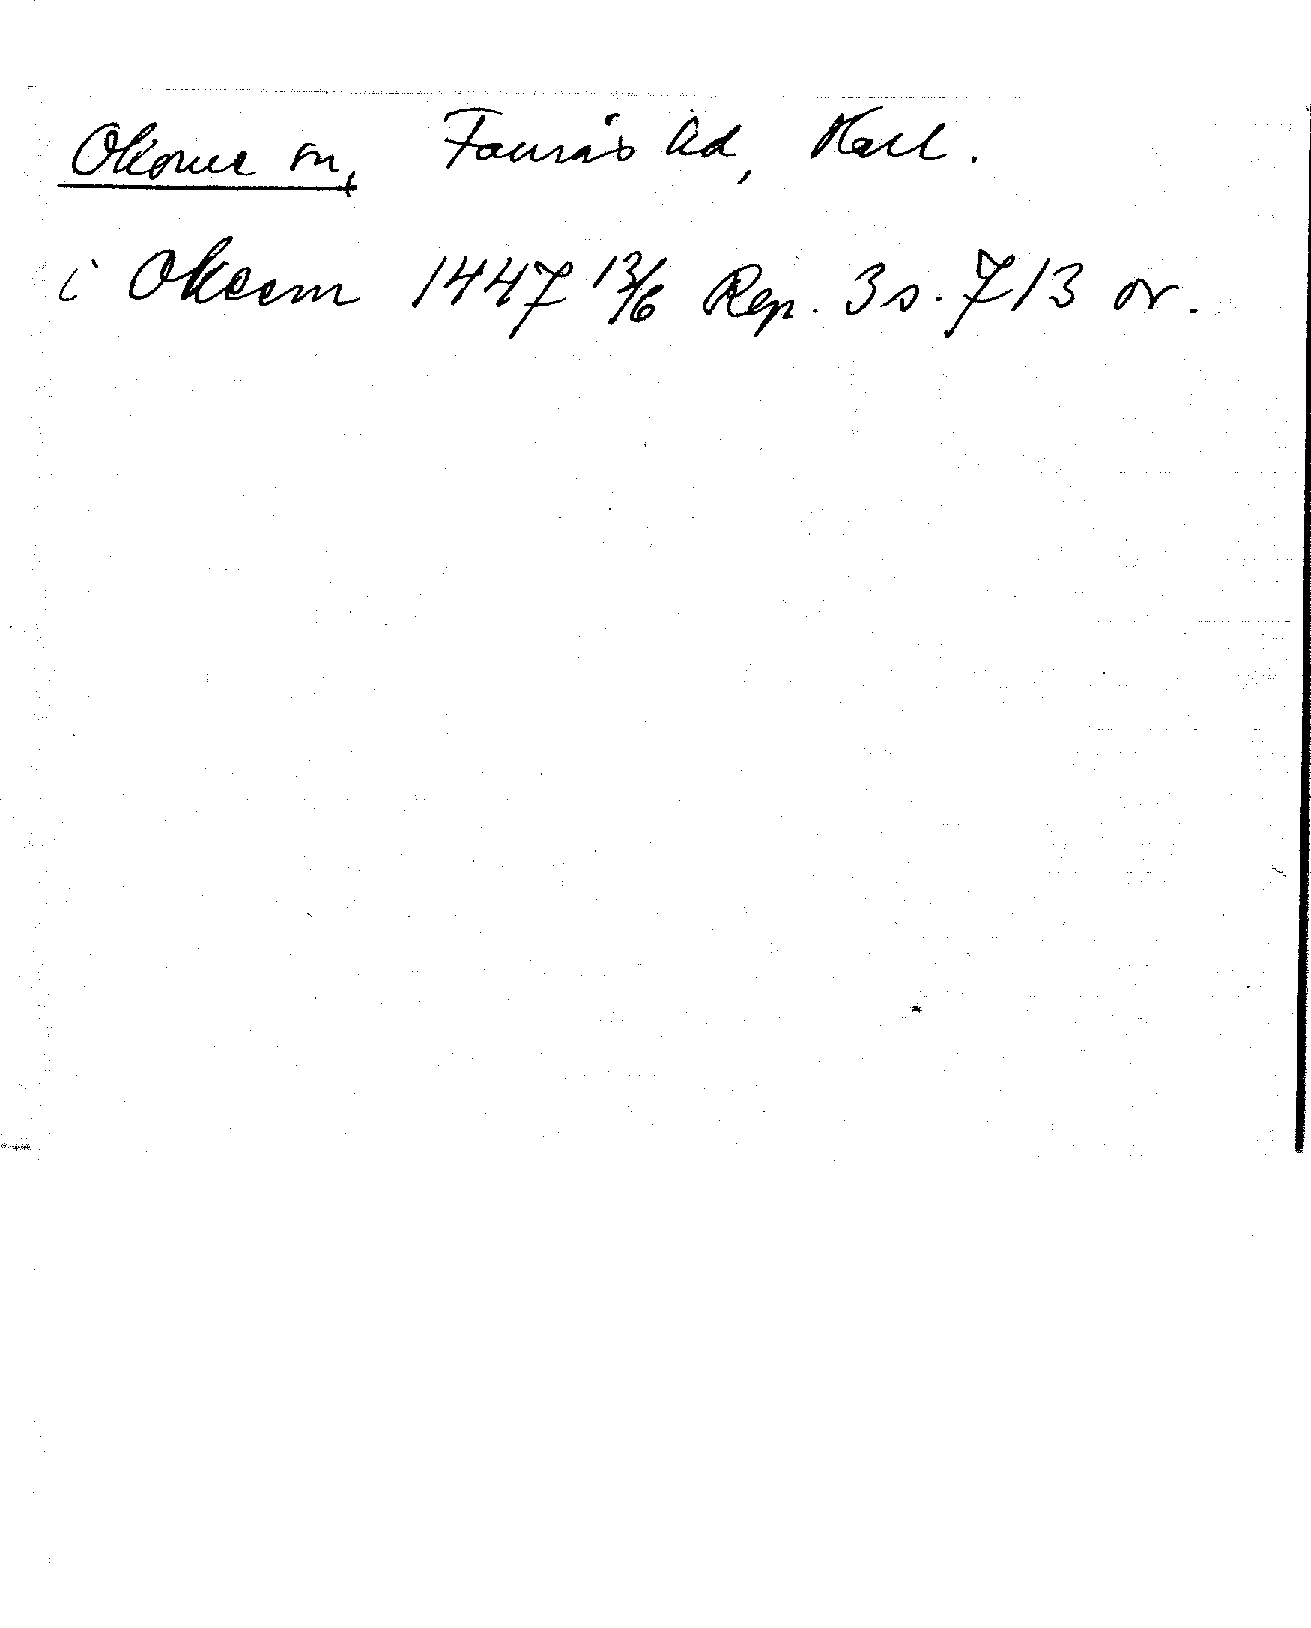 Okome sn, Faurås hd, Hall.
i Okeem 1447 13/6 Rep. 3 s. 713 or.